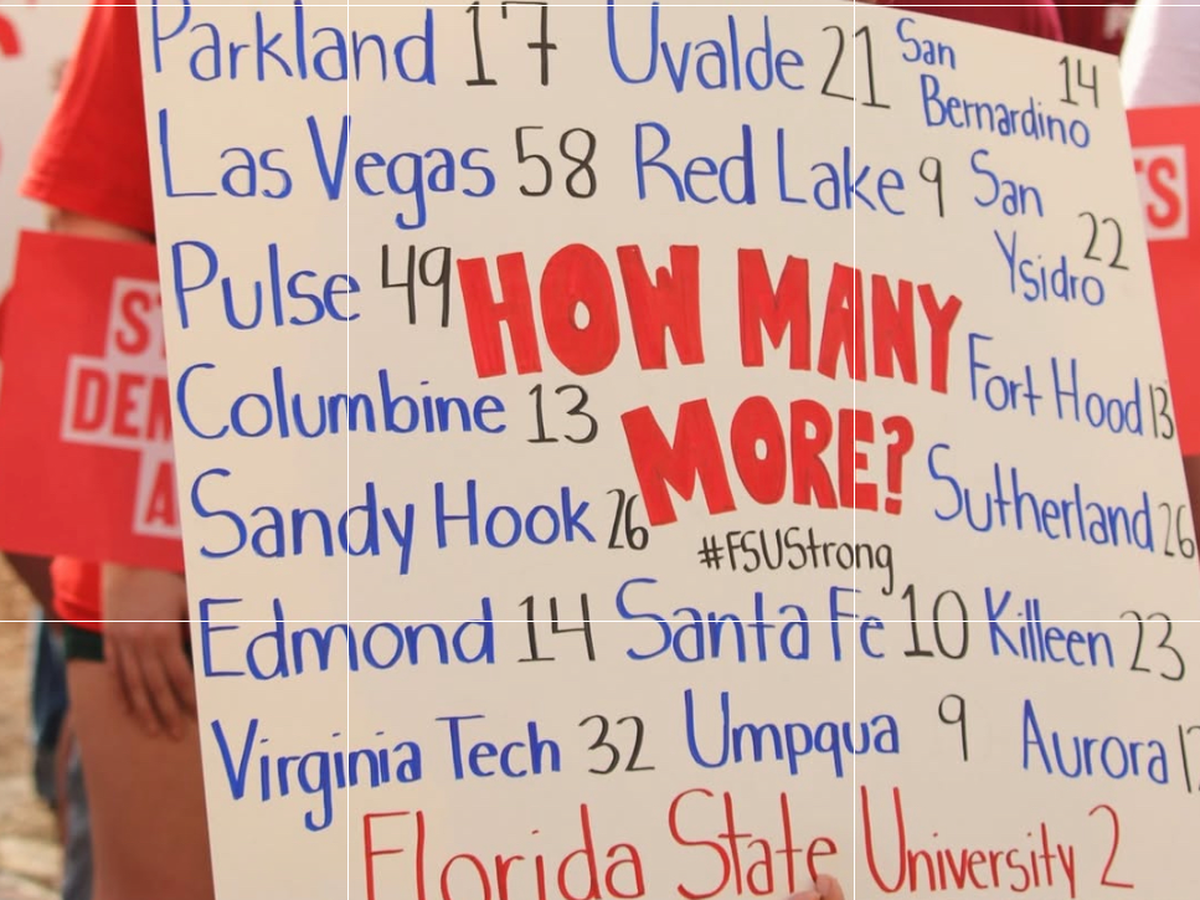 Parkland 17 Uvalde 21 San Bernardino 14
Las Vegas 58 Red Lake 9 San Ysidro 22
Pulse 49 HOW MANY
Fort Hood 13
Columbine 13 MORE?
Sandy Hook 26 Sutherland 26
#FSUStrong
Edmond 14 Santa Fe 10 Killeen 23
Virginia Tech 32 Umpqua 9 Aurora
Florida State University 2